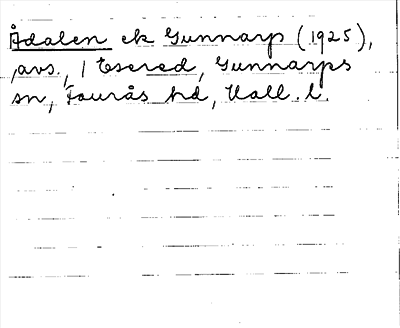 Ådalen ek Gunnarp (1925),
avs., / Esered, Gunnarps
sn, Faurås hd, Hall. l.